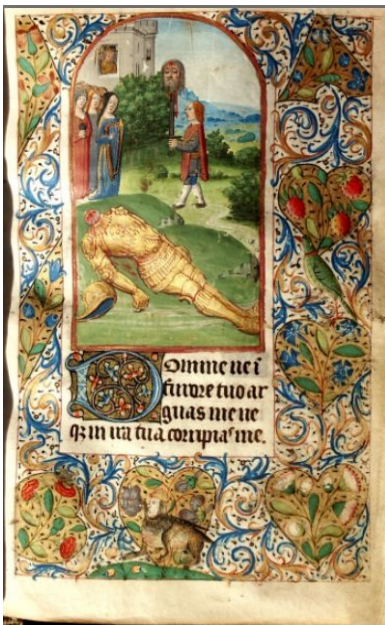 Domine ne i
furore tuo ar
guas me ne
q̄ in ira tua corripias me.